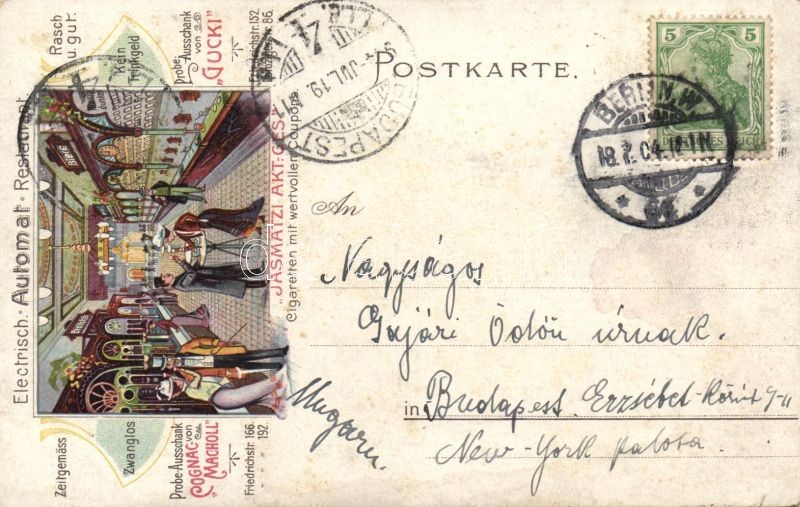 POSTKARTE.
An
Nagyságos
Gajári Ödön úrnak.
in Budapest. Erzsébet-körút 9-11
New-York palota.
Ungarn.
Rasch
u. gut.
Kein
Trinkgeld
Probe-Ausschank
von
"GUCKI"
Friedrichstr. 152.
86.
Electrisch. Automat-Restaurant.
BIERE
"JASMATZI AKT: GES."
Cigaretten mit wertvollen Coupons.
Zeitgemäss
Zwanglos
Probe-Ausschank
COGNAC von
"MACHOLL"
Friedrichstr. 166.
" " 192.
5 5
BERLIN.W.
18.7.04.12-1N
BUDAPEST
JUL. 19